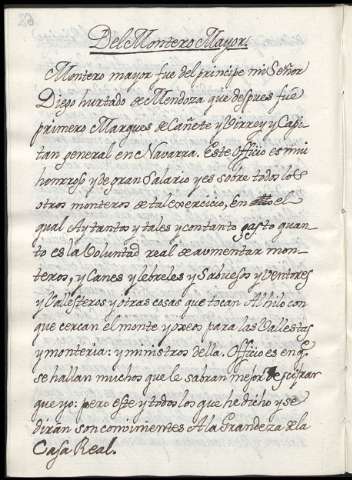 Del Montero Mayor.
Montero mayor fue del principe mi Señor
Diego hurtado de Mendoza que despues fue
primero Marques de Cañete y Virrey y Capi-
tan general en Navarra. Este Officio es mui
honrroso y de gran Salario y es sobre todos los
otros monteros de tal exercicio, en el
qual Ay tantos y tales y con tanto gasto quan-
to es la Voluntad real de aumentar mon-
teros, y Canes y lebreles y Sabuesos y Ventores
y Vallesteros y otras cosas que tocan Al hilo con
que cercan el monte y para las Vallestas
y monteria: y ministros della. Officio es en q
se hallan muchos que le sabran mejor
que yo: pero este y todos los que he dicho y se
diran son convinientes A la Grandeza de la
Casa Real.